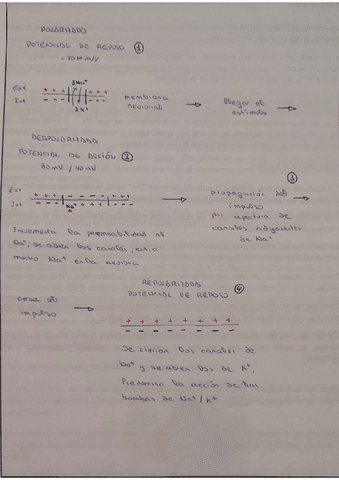 POLARIZADO
POTENCIAL DE REPOSO ①
Ext + + + 3 Na⁺ + + +
Int - - - 2 K⁺ - - -
membrana
neuronal
llega el
estímulo
DESPOLARIZADO
POTENCIAL DE ACCIÓN ②
Ext + + + + - - - - + + +
Int - - - - + + + + - - -
Na⁺
③
propagación del
impulso
por apertura de
canales adyacentes
de Na⁺
Incrementa la permeabilidad al
Na⁺, se abren los canales, entra
mucho Na⁺ en la neurona
cesa el
impulso
REPOLARIZADO
POTENCIAL DE REPOSO ④
+ + + + + + + +
- - - - - - - -
Se cierran los canales de
Na⁺ y se abren los de K⁺.
Predomina la acción de las
bombas de Na⁺/K⁺